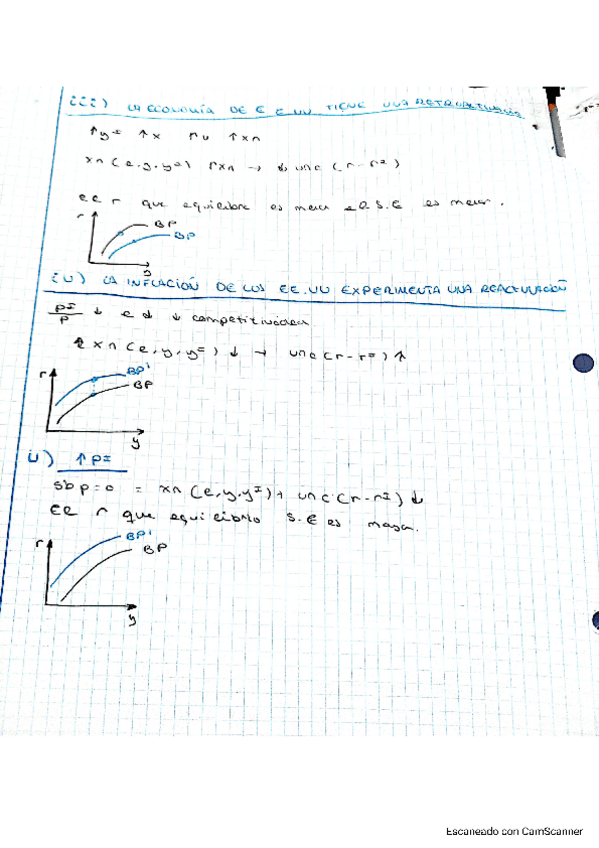 iii) LA ECONOMÍA DE EEUU TIENE UNA
↑y* ↑x ↑xn
xn(e,y,y*) ↑xn → ↓ unc(r-r*)
EE r que equilibra es menor
r
BP
BP
y
iv) LA INFLACIÓN DE LOS EE.UU EXPERIMENTA UNA REACTIVACIÓN
P*/P ↓ e ↓ ↓ competitividad
xn(e,y,y*) ↓ → unc(r-r*) ↑
r
BP'
BP
y
↑ P*
Sbp=0 = xn(e,y,y*) + unc(r-r*) ↓
EE r que equilibrio S.E es mayor.
r
BP'
BP
y
Escaneado con CamScanner